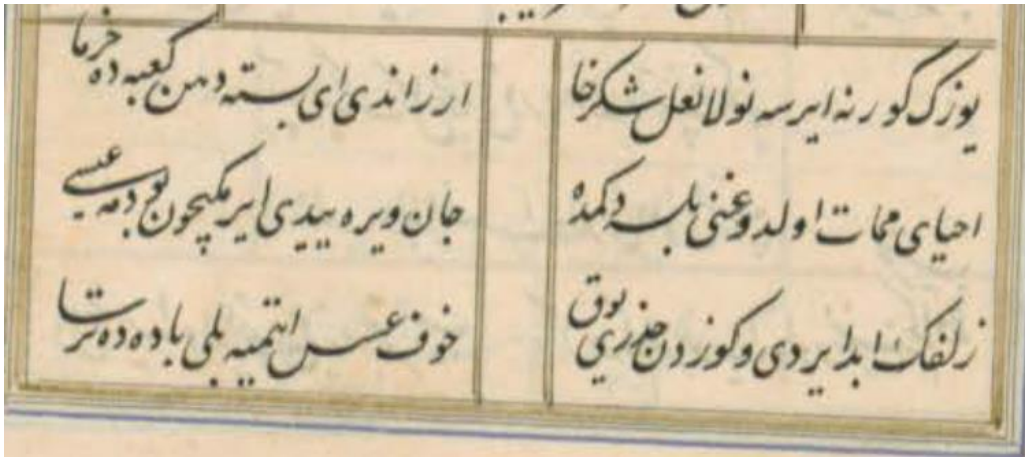 یوزک کورنه ایرسه نولا لعل شکرخا
ارزاندی ای پسته دهن کعبه ده خرما
احیای ممات اولدوغنی بلسه دمکده
جان ویره ییدی ایرمکیچون بو دمه عیسی
زلفک ابدا یردی و کوزدن حذری یوق
خوف عسس ایتمیه بلی باده ده ترسا